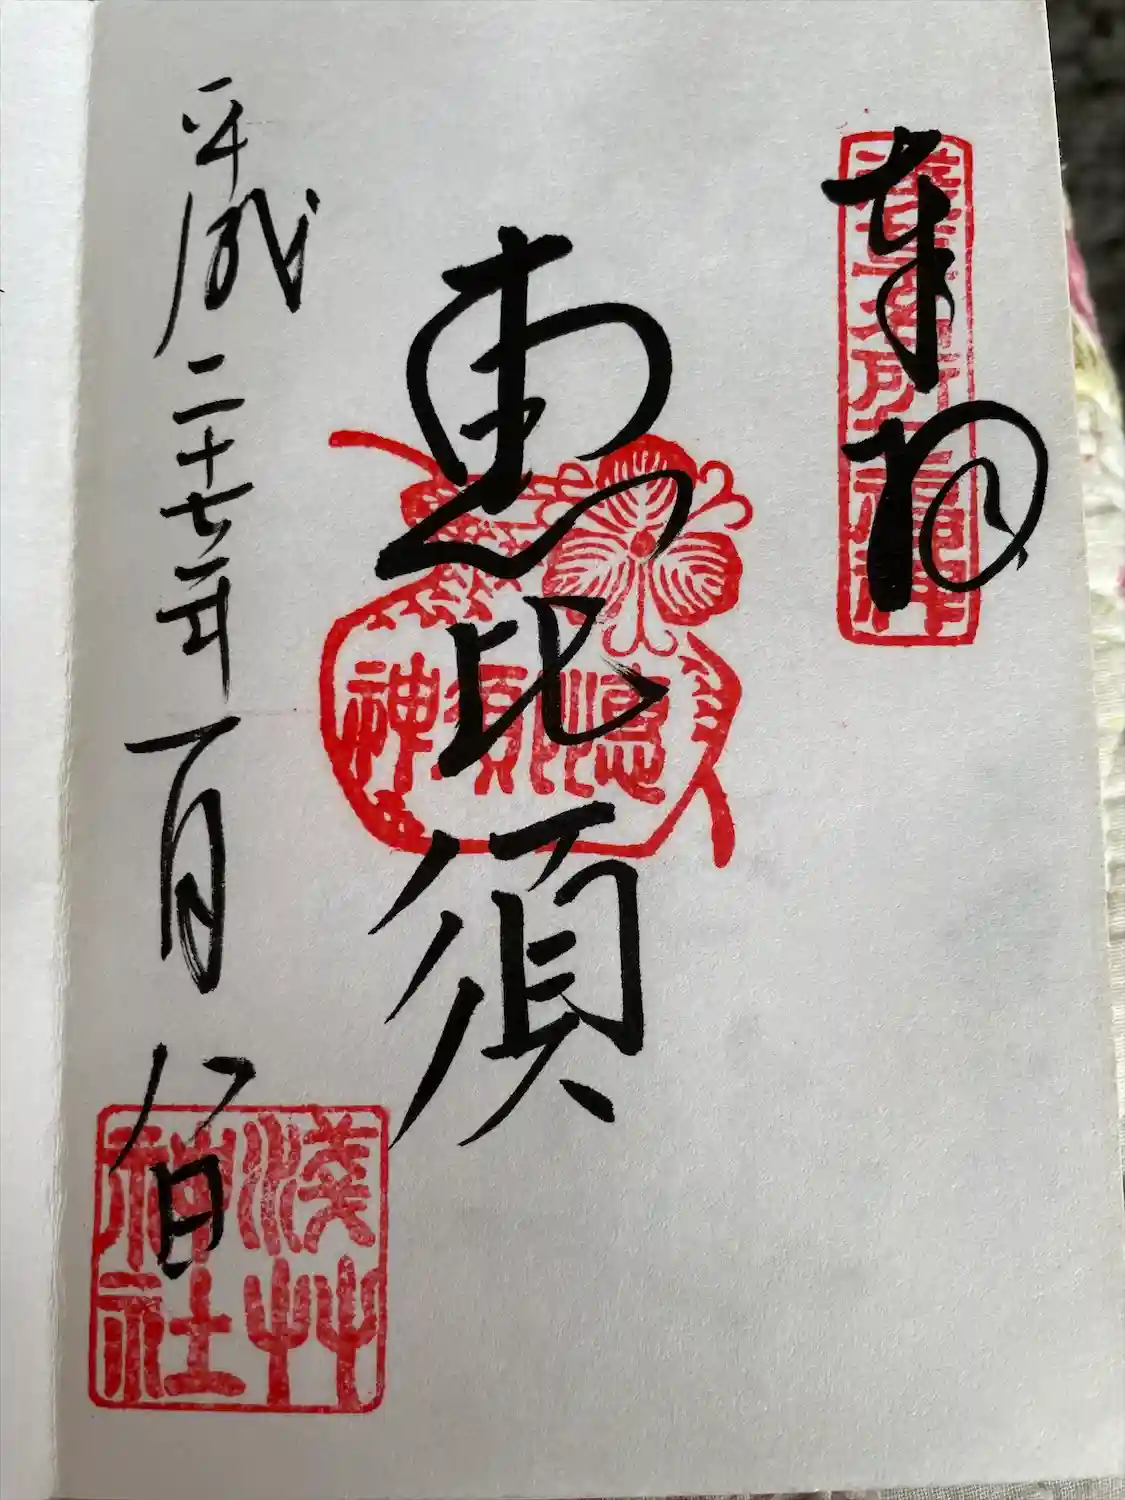 奉拝
淺草名所七福神
恵比須
惠比須神
平成二十七年一月八日
淺艸神社